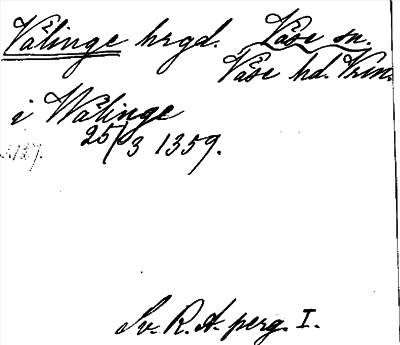 Välinge hrgd. Väse sn.
Väse hd. Vrm.
i Wälinge
25/3 1359.
Sv. R. A. perg. I.